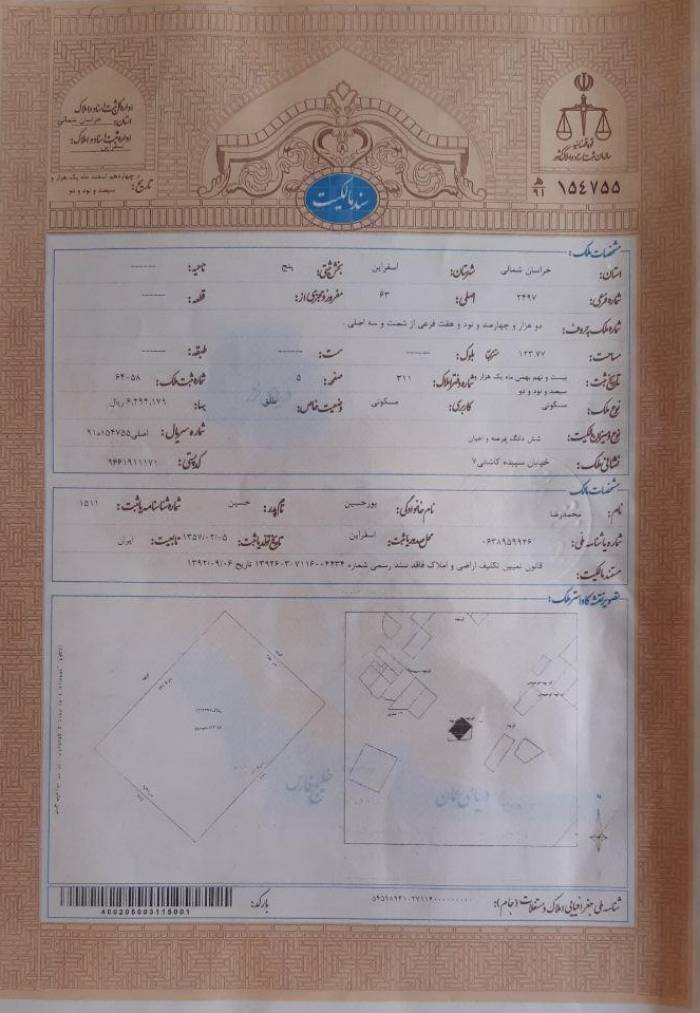 قوه قضائیه
سازمان ثبت اسناد و املاک کشور
۱۵٤۷۵۵
۹۱
اداره کل ثبت اسناد و املاک
استان: خراسان شمالی
اداره ثبت اسناد و املاک:
اسفراین
تاریخ: چهاردهم اسفند ماه یک هزار و
سیصد و نود و دو
سند مالکیت
مشخصات ملک:
استان: خراسان شمالی شهرستان: اسفراین بخش ثبتی: پنج ناحیه: ------
شماره فرعی: ۲۴۹۷ اصلی: ۶۳ مفروز و مجزی از: قطعه: ------
شماره ملک بحروف: دو هزار و چهارصد و نود و هفت فرعی از شصت و سه اصلی
مساحت: ۱۲۳.۷۷ مترمربع بلوک: ------ سمت: ------ طبقه: ------
تاریخ ثبت: بیست و نهم بهمن ماه یک هزار و سیصد و نود و دو شماره دفتر املاک: ۳۱۱ صفحه: ۵ شماره ثبت ملک: ۶۴۰۵۸
نوع ملک: مسکونی کاربری: مسکونی وضعیت خاص: مطلق بهاء: ۶,۲۹۲,۱۷۹ ریال
نوع و میزان مالکیت: شش دانگ عرصه و اعیان شماره سریال: اصلی۱۵۴۷۵۵ه۹۱
نشانی ملک: خیابان سپیده کاشانی۷ کد پستی: ۹۶۶۱۹۱۱۱۷۱
مشخصات مالک
نام: محمدرضا نام خانوادگی: پورحسین نام پدر: حسین شماره شناسنامه یا ثبت: ۱۵۱۱
شماره یا شناسه ملی: ۰۶۳۸۹۵۹۹۲۶ محل صدور یا ثبت: اسفراین تاریخ تولد یا ثبت: ۱۳۵۷/۰۲/۰۵ تابعیت: ایران
مستند مالکیت: قانون تعیین تکلیف اراضی و املاک فاقد سند رسمی شماره ۱۳۹۲۶۰۳۰۷۱۱۶۰۰۴۴۳۴ تاریخ ۱۳۹۲/۰۹/۰۶
تصویر نقشه کاداستر ملک:
خلیج فارس
دریای عمان
شناسه ملی جغرافیایی املاک و مستغلات (جام):
بارکد:
400205003115001